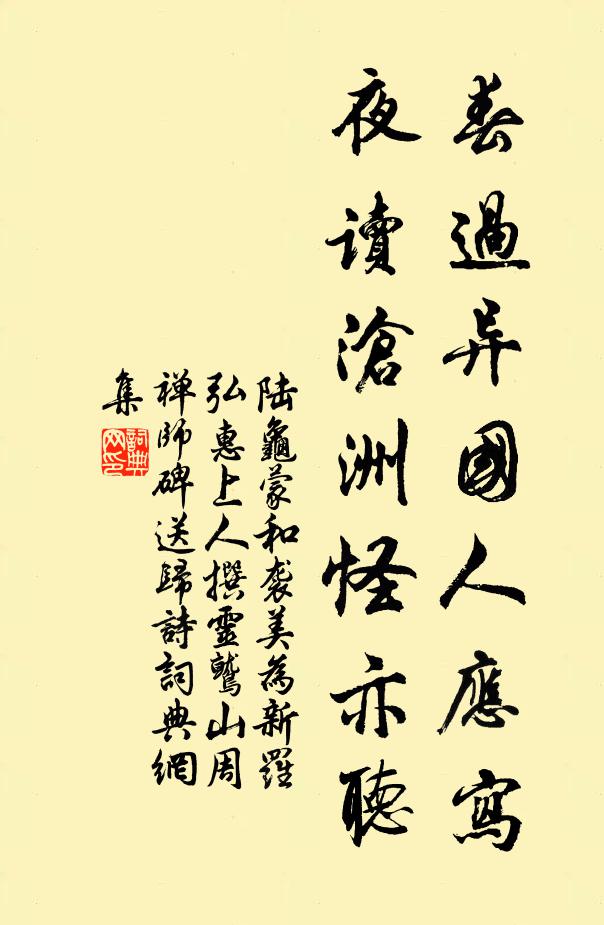 春過异國人應寫
夜讀滄洲怪亦聽
陆龜蒙和袭美為新羅
弘惠上人撰靈鷲山周
禅师碑送歸詩詞典網
集
詞典
网印